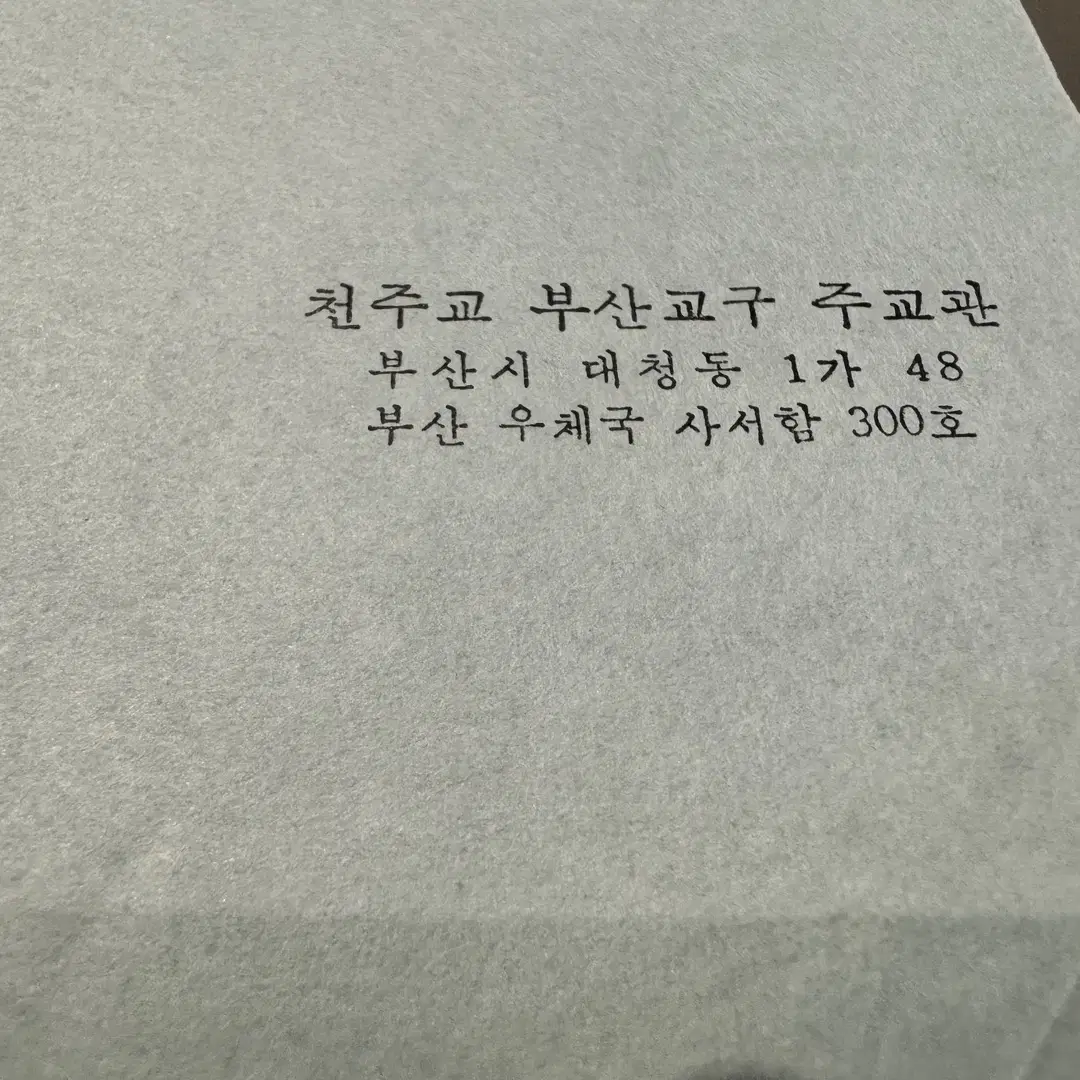 천주교 부산교구 주교관
부산시 대청동 1가 48
부산 우체국 사서함 300호